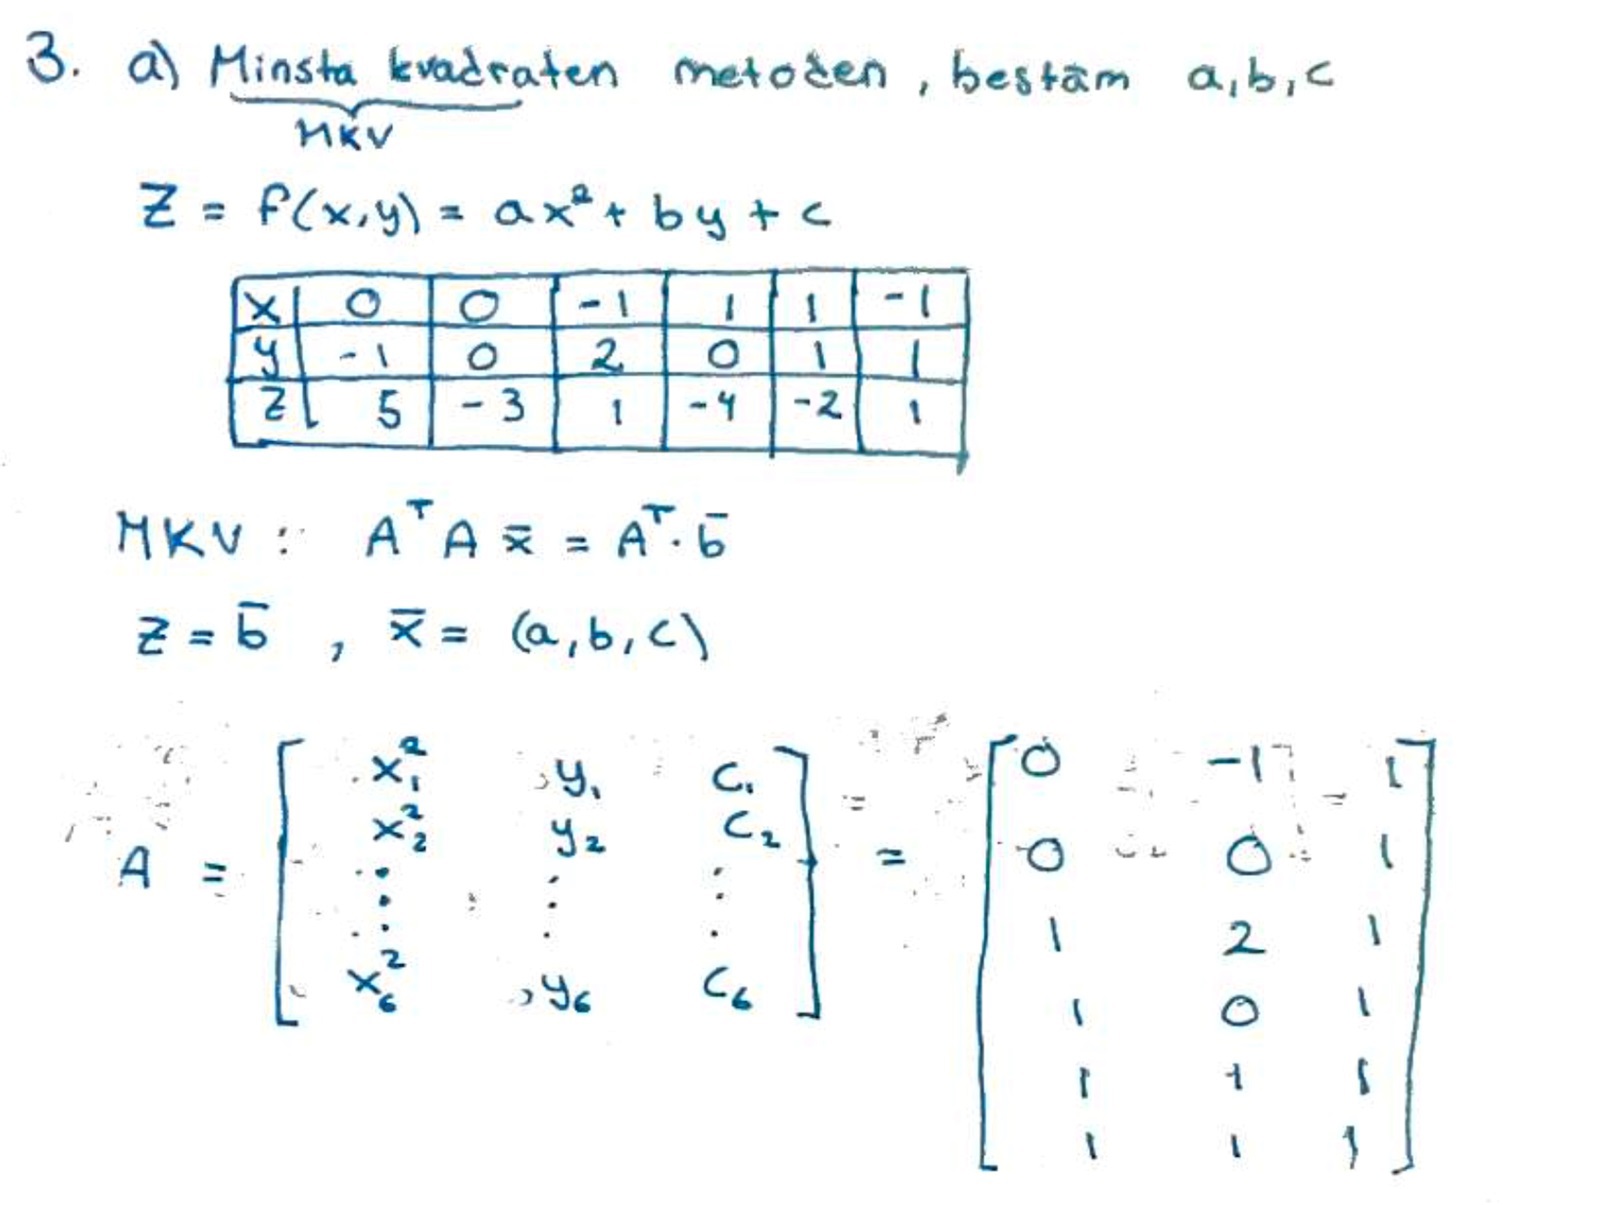 3. a) Minsta kvadraten metoden, bestäm a,b,c
MKV
Z = f(x,y) = ax² + by + c
X 0 0 -1 1 1 -1
y -1 0 2 0 1 1
Z 5 -3 1 -4 -2 1
MKV: AᵀA x̄ = Aᵀ·b̄
Z = b̄ , x̄ = (a,b,c)
A = [ x₁² , y₁ c₁ ] = [ 0 -1 1 ]
x₂² y₂ c₂ 0 0 1
⋮ ⋮ ⋮ 1 2 1
x₆² , y₆ c₆ 1 0 1
1 1 1
1 1 1